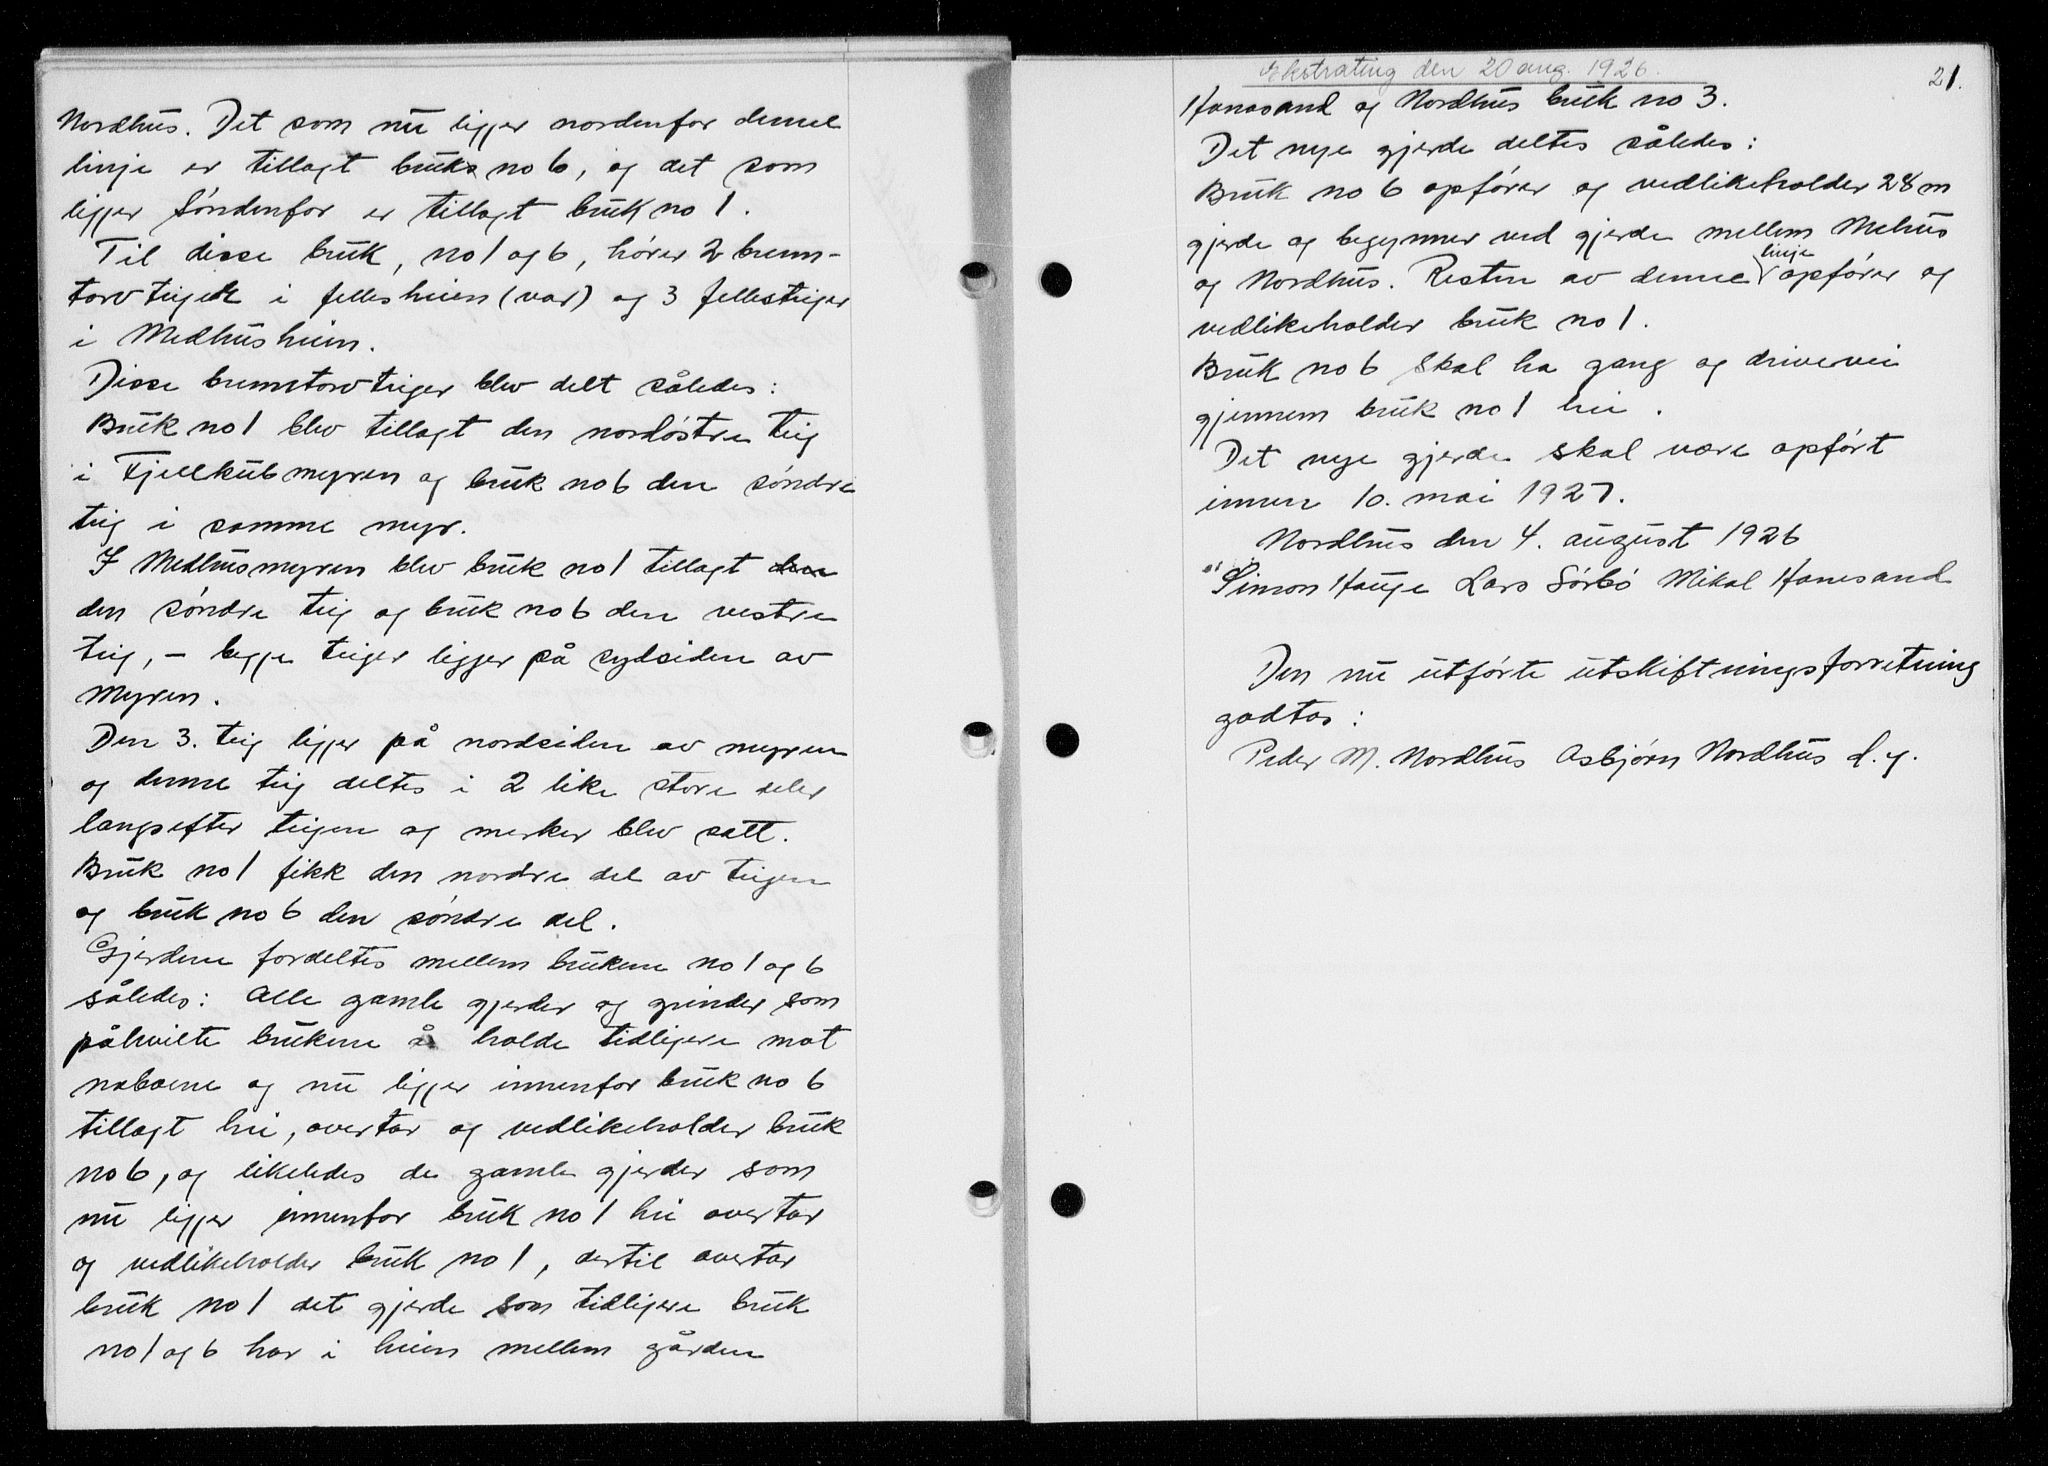 Nordhus. Det som nu ligger nordenfor denne
linje er tillagt bruks no 6, og det som
ligger søndenfor er tillagt bruk no 1.
Til disse bruk, no 1 og 6, hører 2 brenn-
torvteiger i felles heien (var) og 3 fellesteiger
i Medhusheien.
Disse brenntorvteiger blev delt således:
Bruk no 1 blev tillagt den nordøstre teig
i Fjellkubmyren og bruk no 6 den søndre
teig i samme myr.
I Medhusmyren blev bruk no 1 tillagt den
den søndre teig og bruk no 6 den vestre
teig, - begge teiger ligger på sydsiden av
myren.
Den 3. teig ligger på nordsiden av myren
og denne teig deltes i 2 like store deler
langsefter teigen og merker blev satt.
Bruk no 1 fikk den nordre del av teigen
og bruk no 6 den søndre del.
Gjerdene fordeltes mellem brukene no 1 og 6
således: Alle gamle gjerder og grinder som
påhvilte brukene å holde tidligere mot
naboene og nu ligger innenfor bruk no 6
tillagt hei, overtar og vedlikeholder bruk
no 6, og likeledes de gamle gjerder som
nu ligger innenfor bruk no 1 hei overtar
og vedlikeholder bruk no 1, dertil overtar
bruk no 1 det gjerde som tidligere bruk
no 1 og 6 har i heien mellem gården
Ekstrating den 20 aug. 1926.
21.
Hanasand og Nordhus bruk no 3.
Det nye gjerde deltes således:
Bruk no 6 opfører og vedlikeholder 28 m
gjerde og begynner ved gjerde mellem Mehus
og Nordhus. Resten av denne linje opfører og
vedlikeholder bruk no 1.
Bruk no 6 skal ha gang og drivervei
gjennem bruk no 1 hei.
Det nye gjerde skal være opført
innen 10. mai 1927.
Nordhus den 4. august 1926
Simon Hauge Lars Sørbø Mikal Hanesand
Den nu utførte utskiftningsforretning
godtas:
Peder M. Nordhus Asbjørn Nordhus d. y.